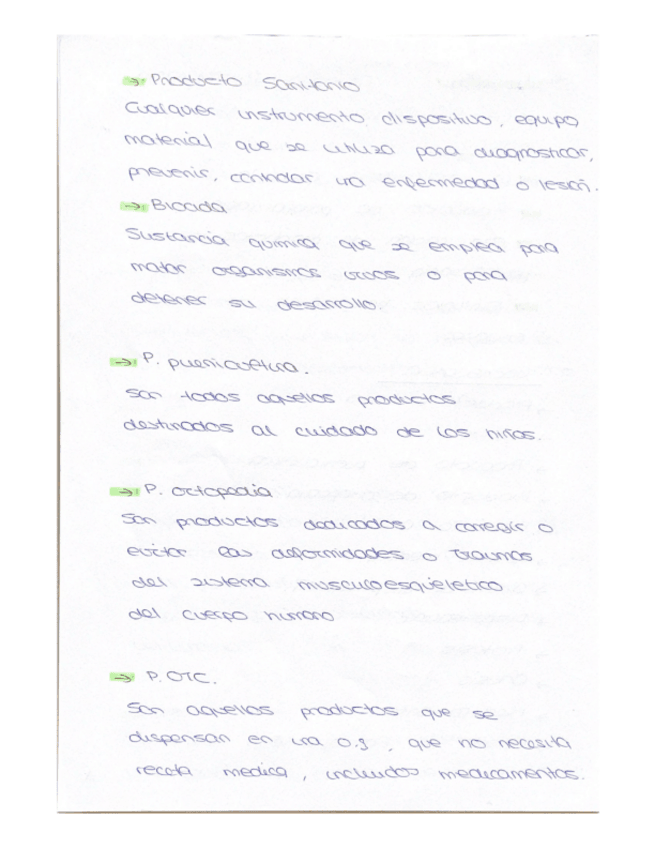 → Producto Sanitario
Cualquier instrumento, dispositivo, equipo
material que se utiliza para diagnosticar,
prevenir, controlar una enfermedad o lesión.
→ Biocida
Sustancia química que se emplea para
matar organismos vivos o para
detener su desarrollo.
→ P. puericultura.
Son todos aquellos productos
destinados al cuidado de los niños.
→ P. ortopedia
Son productos dedicados a corregir o
evitar las deformidades o traumas
del sistema musculoesquéletico
del cuerpo humano
→ P. OTC.
Son aquellos productos que se
dispensan en una o.f, que no necesita
receta medica, incluidos medicamentos.